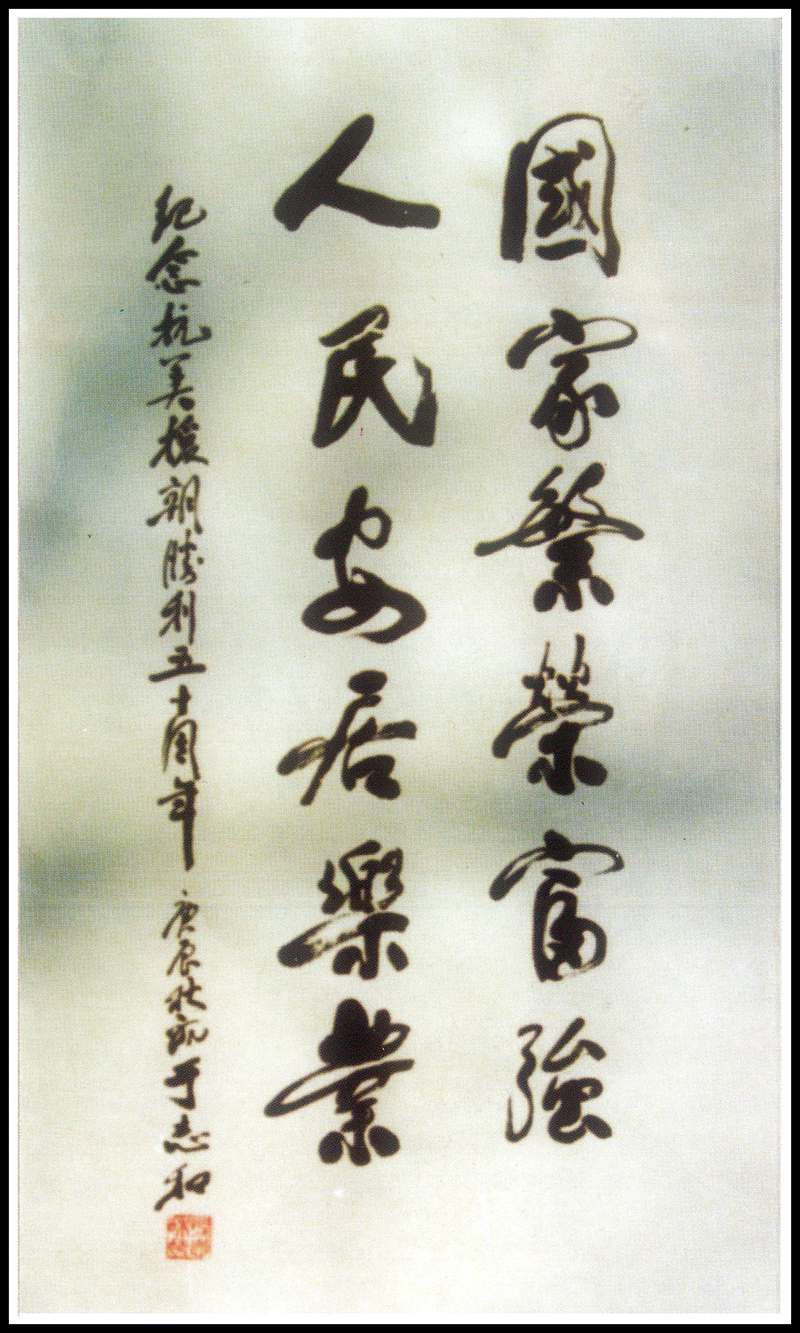 國家繁榮富強
人民安居樂業
紀念抗美援朝勝利五十周年 庚辰秋月于志和